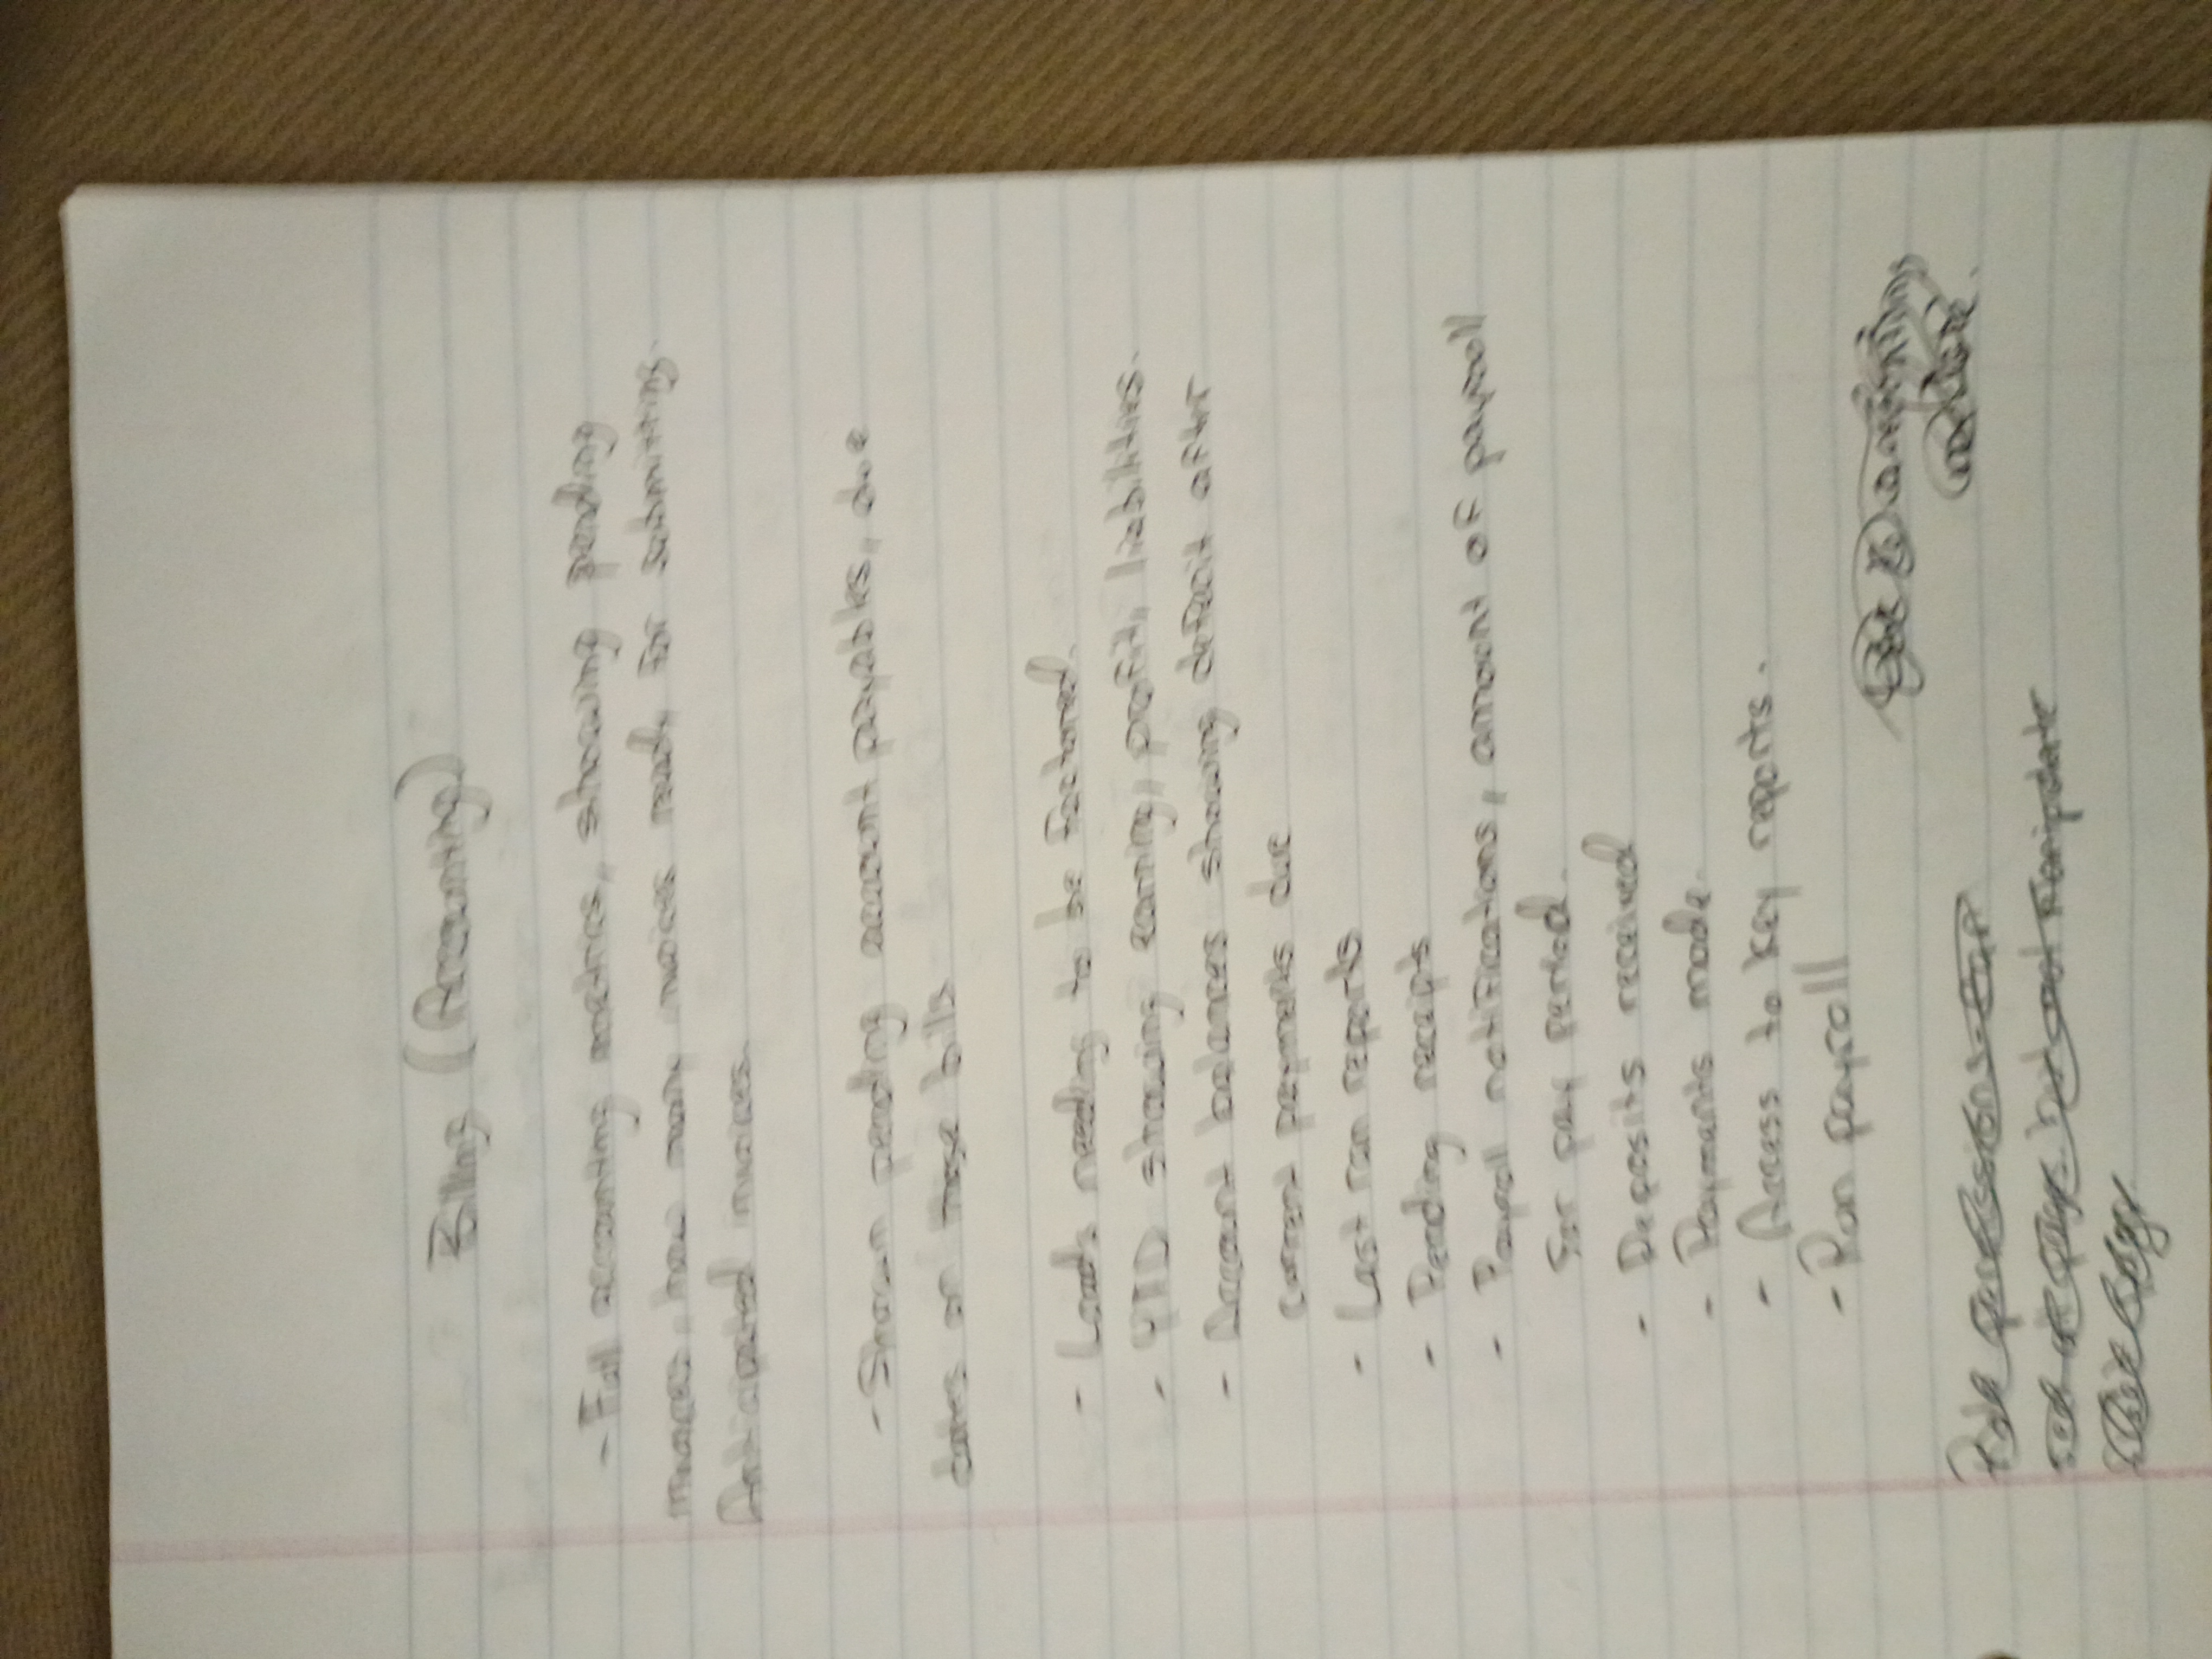 Billing (Accounting)
- Full accounting metrics, showing pending
invoices, how many invoices ready for submitting.
Anticipated invoices.
- Shown pending account payables, due
dates on these bills
- Loads needing to be factored.
- YTD showing earning, profit, liabilities.
- Account balances showing deficit after
current payments due
- Last ran reports
- Pending receipts
- Payroll notifications, amount of payroll
for pay period.
- Deposits received
- Payments made.
- Access to key reports.
- Ran payroll
but not manipulate